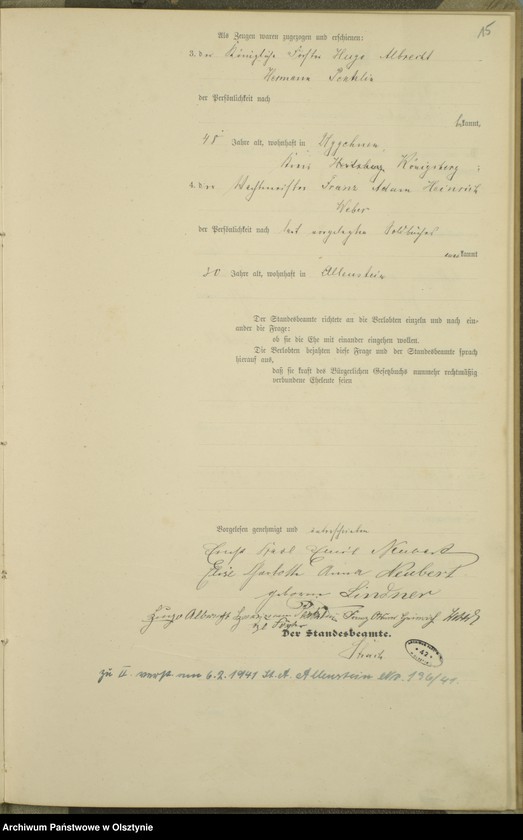 15
Als Zeugen waren zugezogen und erschienen:
3. der Königliche Förster Hugo Albrecht
Hermann
der Persönlichkeit nach
bekannt,
48 Jahre alt, wohnhaft in
Kreis Königsberg;
4. der Wachtmeister Franz Adam Heinrich
Weber
der Persönlichkeit nach laut vorgelegten Soldbuches
anerkannt
30 Jahre alt, wohnhaft in Allenstein
Der Standesbeamte richtete an die Verlobten einzeln und nach ein-
ander die Frage:
ob sie die Ehe mit einander eingehen wollen.
Die Verlobten bejahten diese Frage und der Standesbeamte sprach
hierauf aus,
daß sie kraft des Bürgerlichen Gesetzbuchs nunmehr rechtmäßig
verbundene Eheleute seien
Vorgelesen genehmigt und unterschrieben
Ernst Karl Emil Neubert
Elise Charlotte Anna Neubert
geborene Lindner
Hugo Albrecht Hermann Franz Adam Heinrich Weber
Kgl Förster
Der Standesbeamte.
42
zu II verst am 6.2.1941 St.A. Allenstein Nr. 136/41.
Archiwum Państwowe w Olsztynie